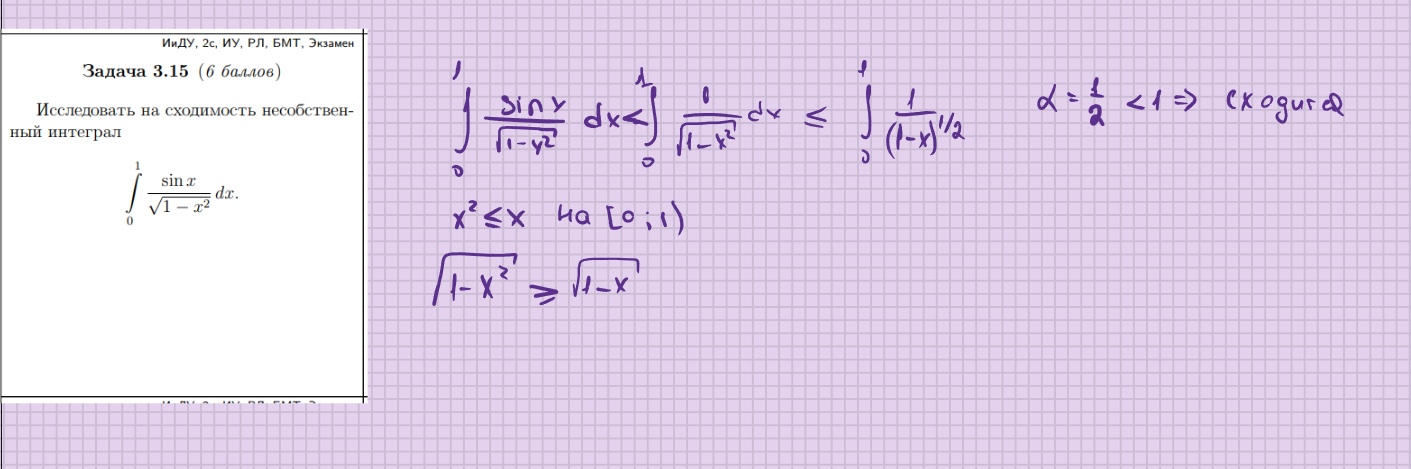 ИиДУ, 2с, ИУ, РЛ, БМТ, Экзамен
Задача 3.15 (6 баллов)
Исследовать на сходимость несобствен-
ный интеграл
∫₀¹ sin x / √(1 − x²) dx.
∫₀¹ sin x / √(1-x²) dx < ∫₀¹ 1 / √(1-x²) dx ≤ ∫₀¹ 1 / (1-x)^1/2 α = 1/2 < 1 => сходится
x² ≤ x на [0; 1)
√(1-x²) ≥ √(1-x)
ИиДУ, 2с, ИУ, РЛ, БМТ, Экзамен